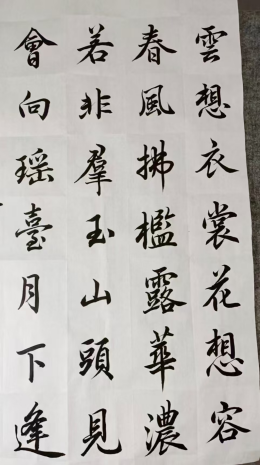 雲想衣裳花想容
春風拂檻露華濃
若非羣玉山頭見
會向瑶臺月下逢